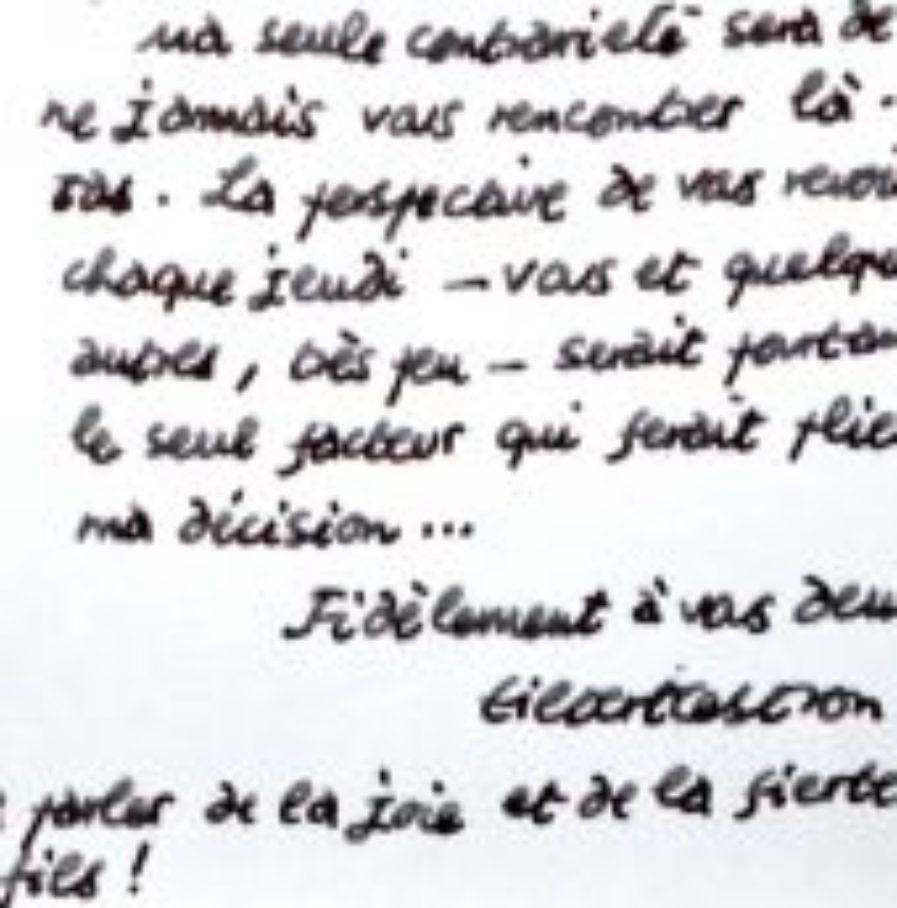 ma seule contrariété sera de
ne jamais vous rencontrer là-
bas. La perspective de vous revoi
chaque jeudi – vous et quelque
autres, très peu – serait pourtan
le seul facteur qui ferait plie
ma décision ...
Fidèlement à vous deu
Gilbert Castron
parler de la joie et de la fierté
fils !